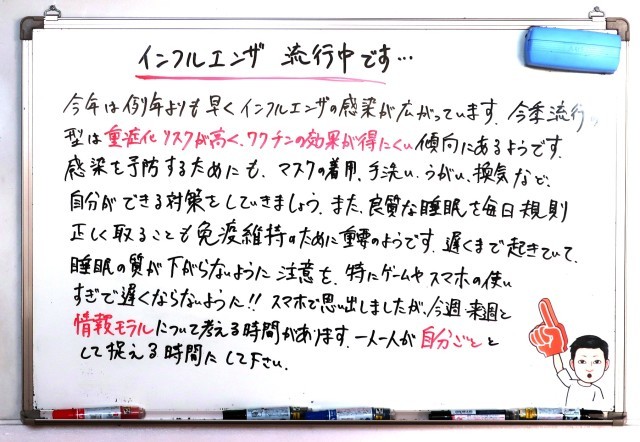 インフルエンザ 流行中です…
今年は例年よりも早くインフルエンザの感染が広がっています。今季流行の
型は重症化リスクが高く、ワクチンの効果が得にくい傾向にあるようです。
感染を予防するためにも、マスクの着用、手洗い、うがい、換気など、
自分ができる対策をしていきましょう。また、良質な睡眠を毎日規則
正しく取ることも免疫維持のために重要のようです。遅くまで起きていて、
睡眠の質が下がらないように注意を。特にゲームやスマホの使い
すぎで遅くならないように!! スマホで思い出しましたが、今週・来週と
情報モラルについて考える時間があります。一人一人が自分ごとと
して捉える時間にして下さい。